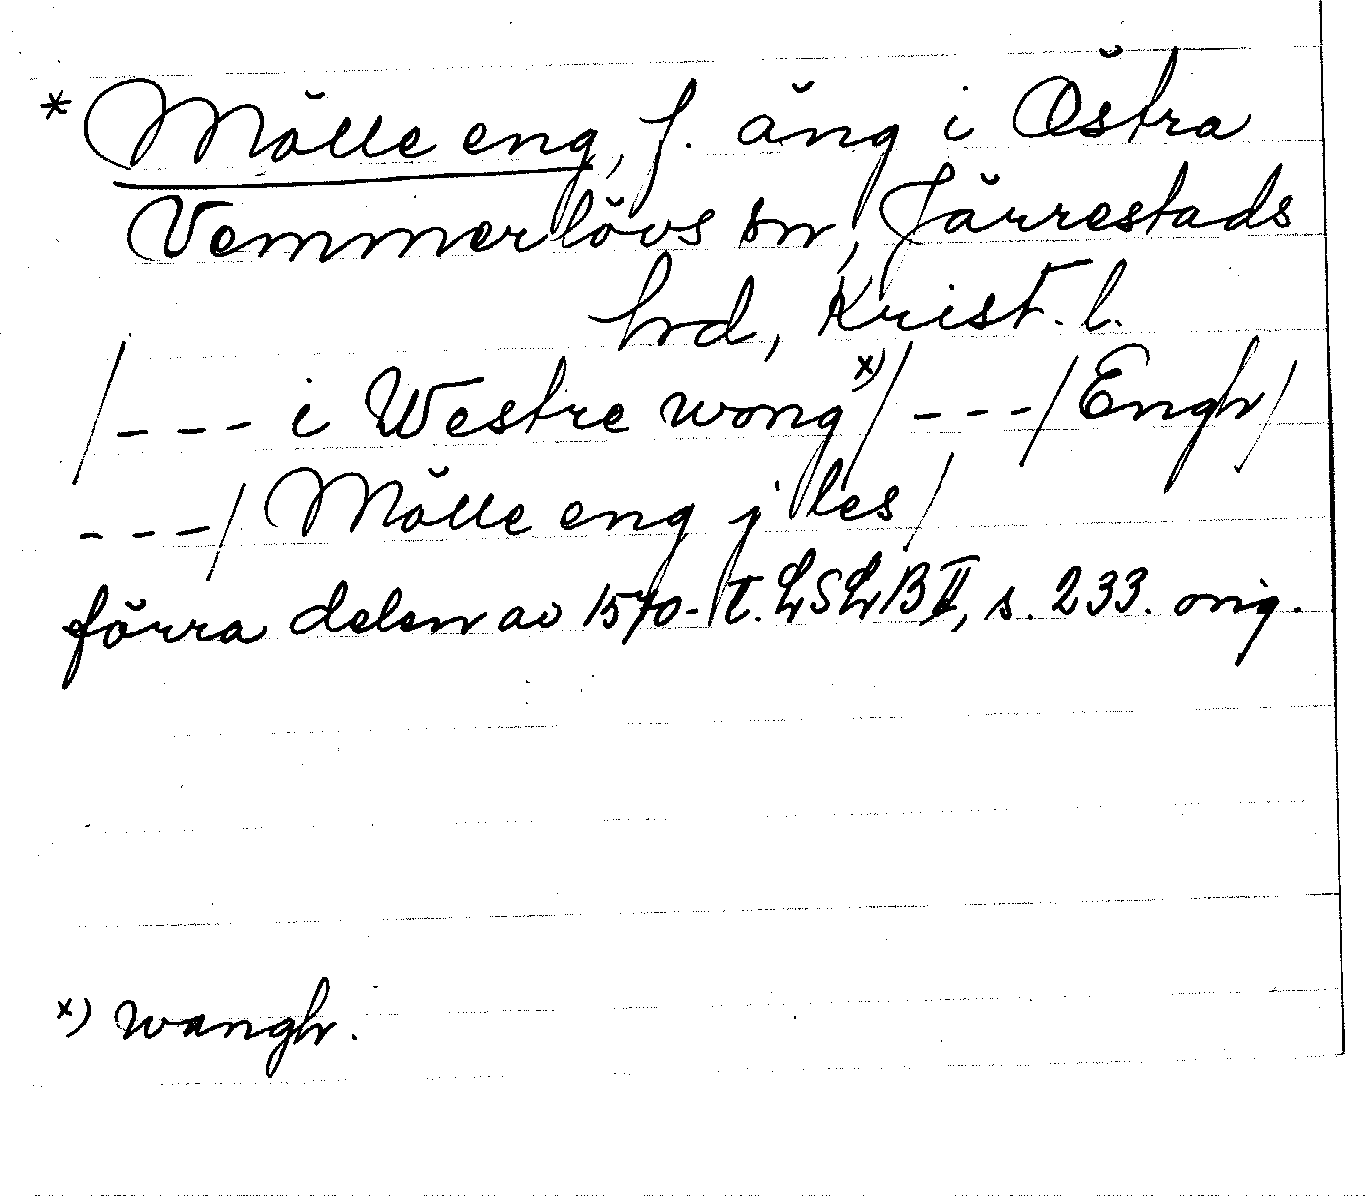 * Mölle eng, f. äng i Östra
Vemmerlövs sn, Järrestads
hrd, Krist. l.
/--- i Westre wong x)/ ---/ Engh/
---/ Mölle eng j les/
förra delen av 1570-t. LSLB II, s. 233. orig.
x) wangh.